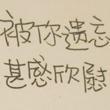 被你遗忘
甚感欣慰